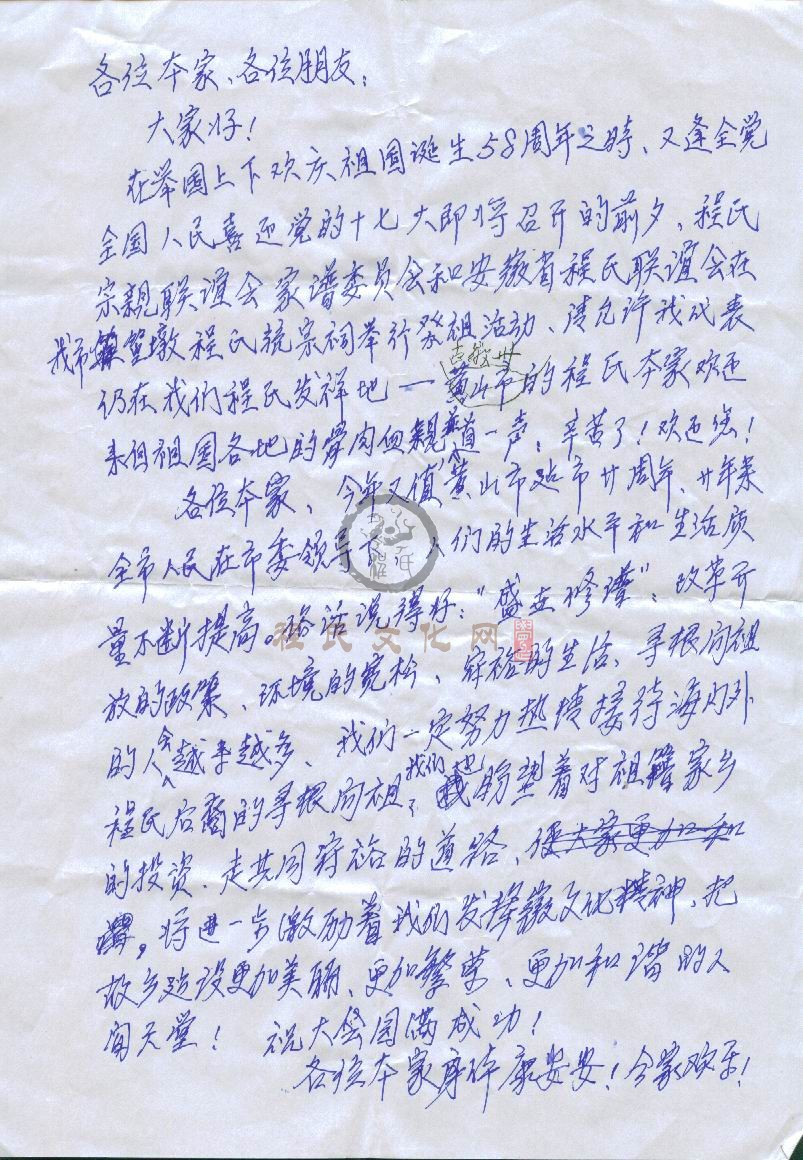 各位本家、各位朋友:
大家好!
在举国上下欢庆祖国诞生58周年之時、又逢全党
全国人民喜迎党的十七大即将召开的前夕、程氏
宗親联谊会家谱委员会和安徽省程氏联谊会在
我市篁墩程氏统宗祠举行祭祖活动、请允许我代表
古徽州
仍在我们程氏发祥地一黄山市的程氏本家欢迎
来自祖国各地的骨肉血親道一声,辛苦了!欢迎您!
各位本家、今年又值黄山市建市廿周年、廿年来
全市人民在市委领导下 人们的生活水平和生活质
量不断提高。俗话说得好:"盛世修谱",改革开
程氏文化网
放的政策、环境的宽松、富裕的生活、寻根问祖
的人会越来越多、我们一定努力热情接待海内外
程氏后裔的寻根问祖,我们也盼望着对祖籍家乡
的投资.走共同富裕的道路、使大家更加和
谐,将进一步激励着我们发挥徽文化精神、把
故乡建设更加美丽、更加繁荣、更加和谐的人
间天堂! 祝大会园满成功!
各位本家身体康安!全家欢乐!